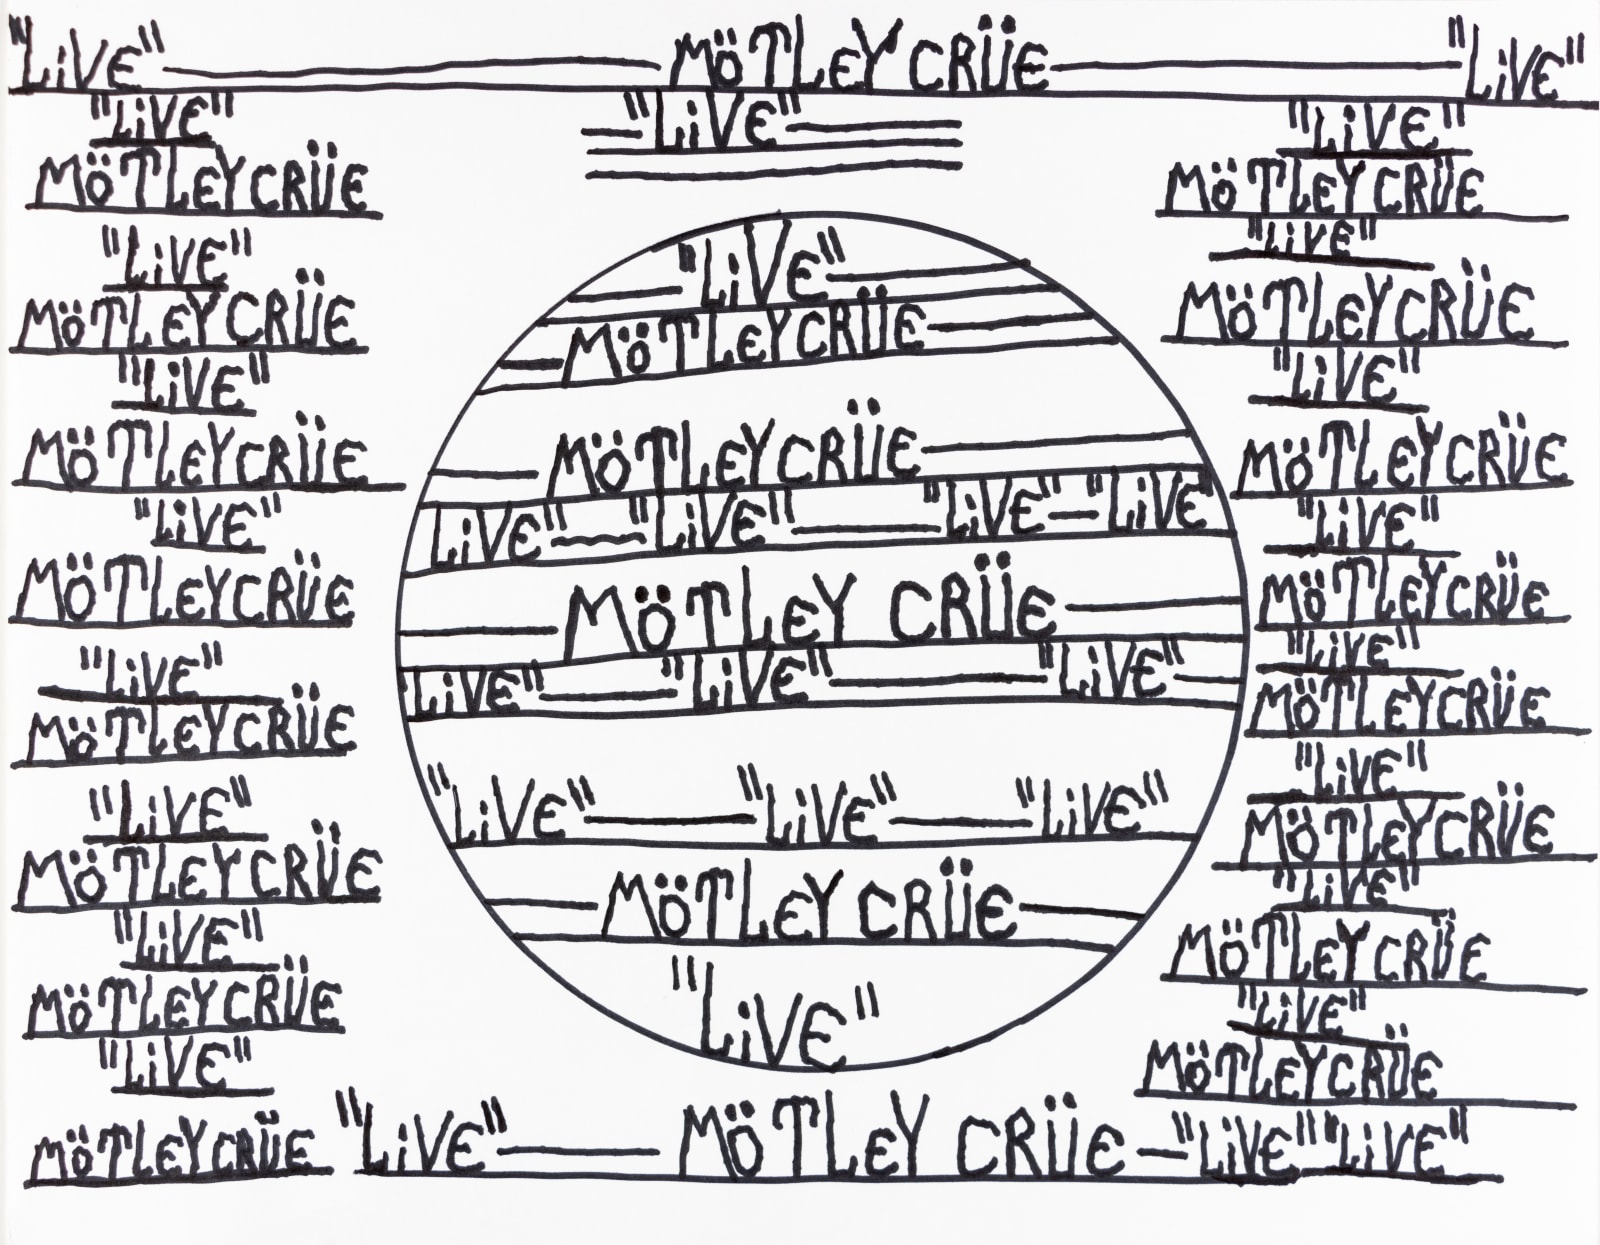 "LiVE" MÖTLEY CRÜE "LiVE"
"LiVE"
"LiVE"
MÖTLEY CRÜE
"LiVE"
MÖTLEY CRÜE
"LiVE"
MÖTLEY CRÜE
"LiVE"
MÖTLEY CRÜE
"LiVE"
MÖTLEY CRÜE
"LiVE"
MÖTLEY CRÜE
"LiVE"
MÖTLEY CRÜE
"LiVE"
"LiVE"
MÖTLEY CRÜE
MÖTLEY CRÜE
LiVE" "LiVE" "LiVE" "LiVE"
MÖTLEY CRÜE
LiVE" "LiVE" "LiVE"
"LiVE" "LiVE" "LiVE"
MÖTLEY CRÜE
"LiVE"
"LiVE"
MÖTLEY CRÜE
"LiVE"
MÖTLEY CRÜE
"LiVE"
MÖTLEY CRÜE
"LiVE"
MÖTLEY CRÜE
"LiVE"
MÖTLEY CRÜE
"LiVE"
MÖTLEY CRÜE
"LiVE"
MÖTLEY CRÜE
"LiVE"
MÖTLEY CRÜE
MÖTLEY CRÜE "LiVE" MÖTLEY CRÜE "LiVE" "LiVE"